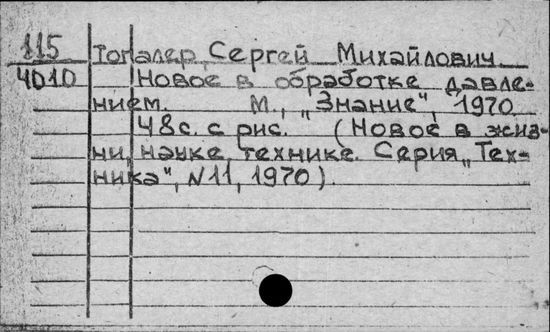 115 Топалер, Сергей Михайлович
4010 Новое в обработке давле-
нием. М., „Знание", 1970
48с. с рис. (Новое в жиз-
ни, науке, технике. Серия „Тех-
ника", N11, 1970).